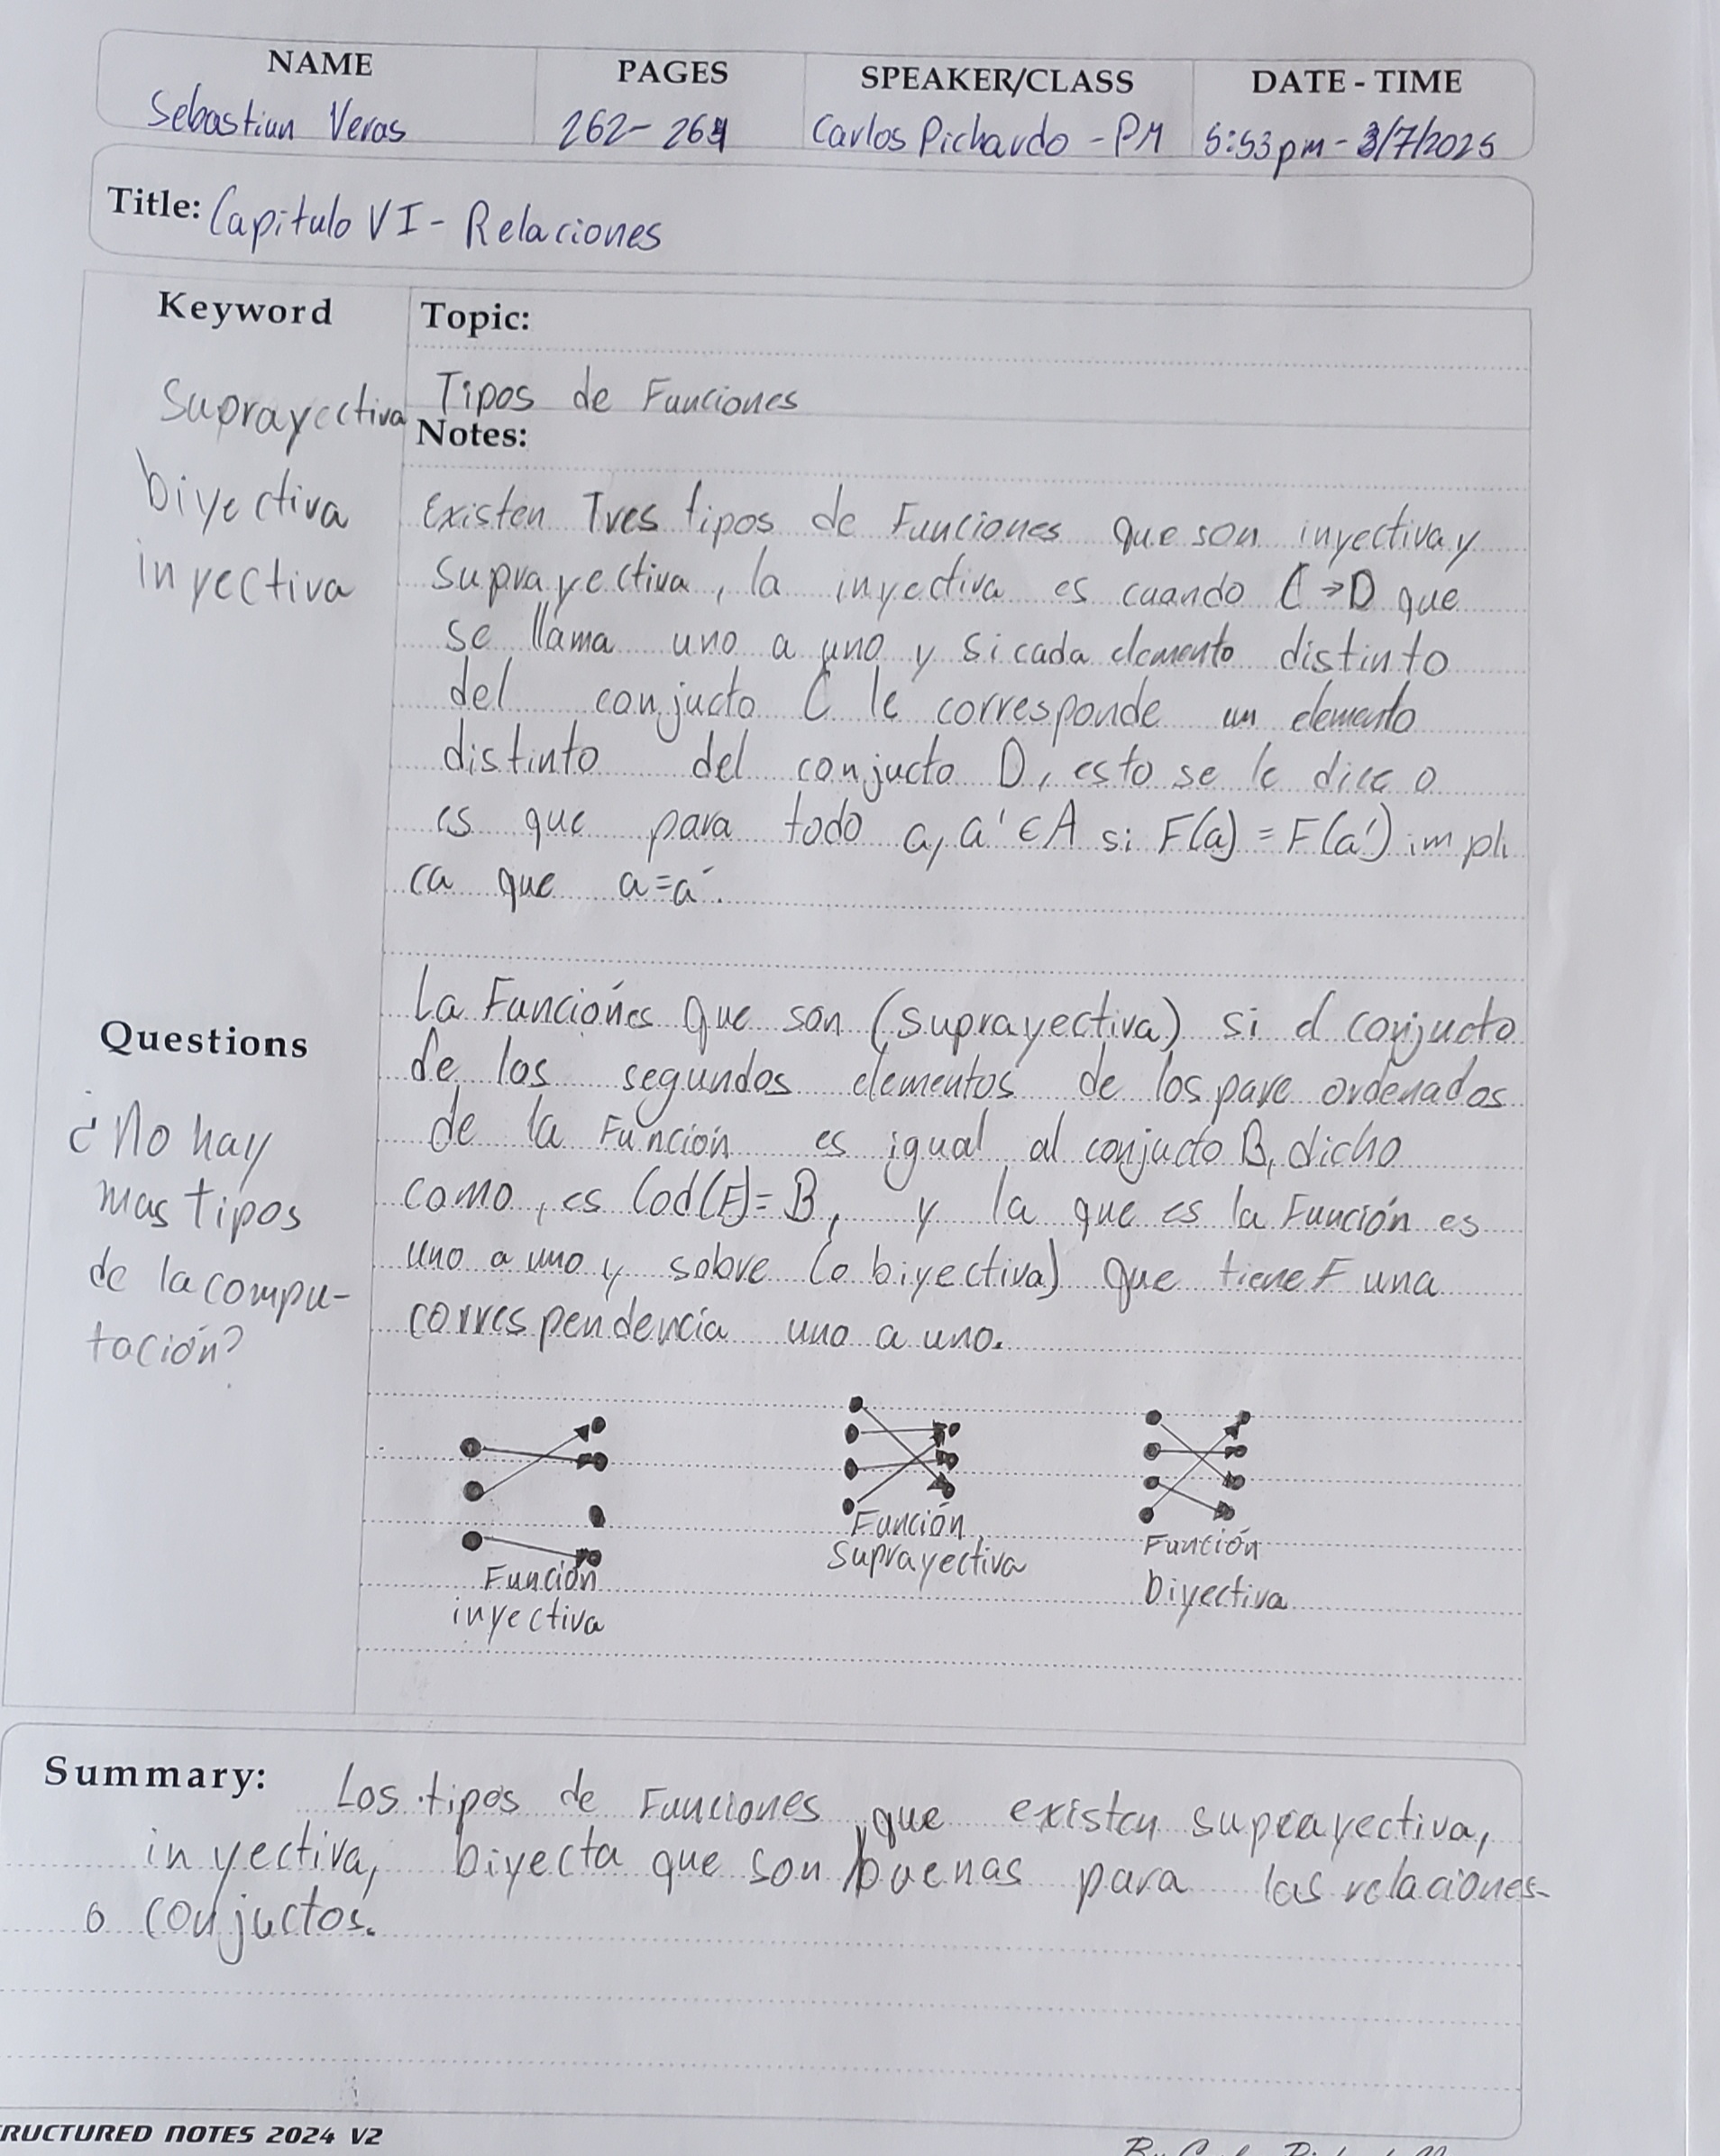 NAME PAGES SPEAKER/CLASS DATE - TIME
Sebastian Veras 262- 264 Carlos Pichardo - PM 5:53 pm - 3/7/2025
Title: Capitulo VI - Relaciones
Keyword
Suprayectiva
biyectiva
inyectiva
Questions
¿No hay
mas tipos
de la compu-
tación?
Topic:
Tipos de Funciones
Notes:
Existen Tres tipos de Funciones que son inyectiva y
suprayectiva, la inyectiva es cuando C→D que
se llama uno a uno y si cada elemento distinto
del conjucto C le corresponde un elemento
distinto del conjucto D, esto se le dice o
es que para todo a, a' ∈ A si F(a) = F(a') impli
ca que a=a'.
La Funciónes que son (suprayectiva) si el conjucto
de los segundos elementos de los pare ordenados
de la Función es igual al conjucto B, dicho
como, es Cod(F)= B, y la que es la Función es
uno a uno y sobre (o biyectiva) que tiene F una
correspendencia uno a uno.
Función
inyectiva
Función
Suprayectiva
Función
Biyectiva
Summary: Los tipos de Funciones que existen suprayectiva,
inyectiva, biyecta que son buenas para las relaciones
o conjuctos.
RUCTURED NOTES 2024 V2